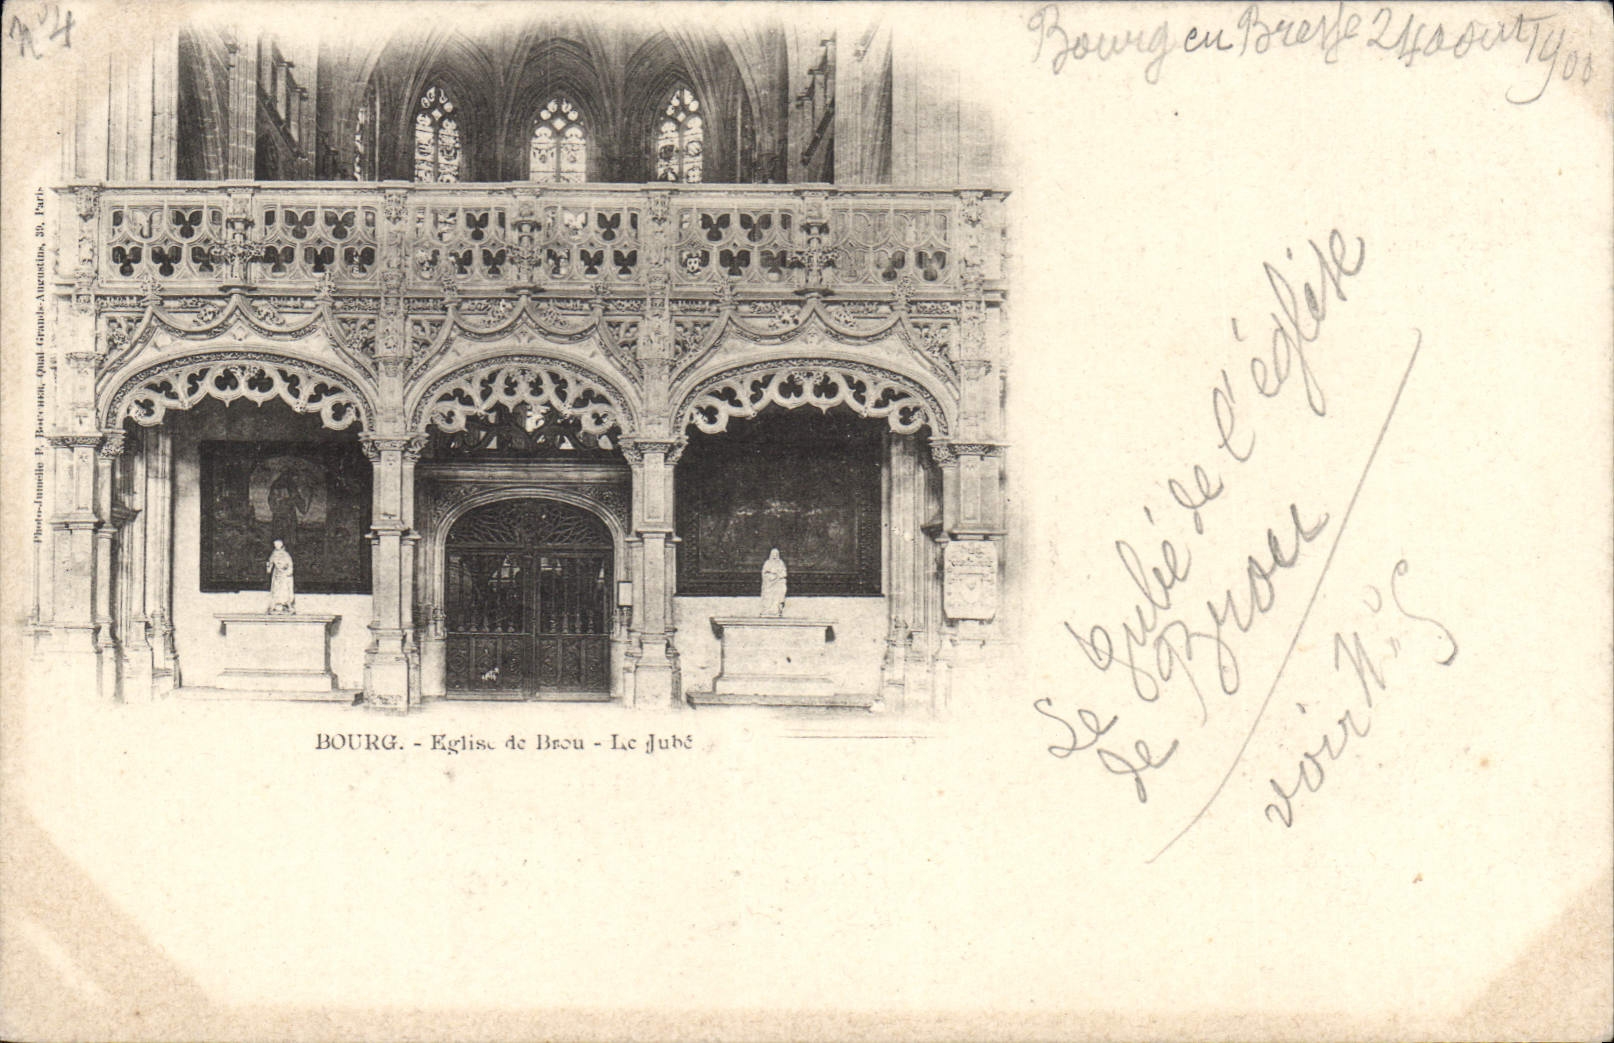 N° 4
Bourg en Bresse 24 aout 1900
Photo-Jumelle P. Quai Grands-Augustins, 39, Paris
Le Jubé de l'église
de Brou
voir N° 5
BOURG. - Eglise de Brou - Le Jubé